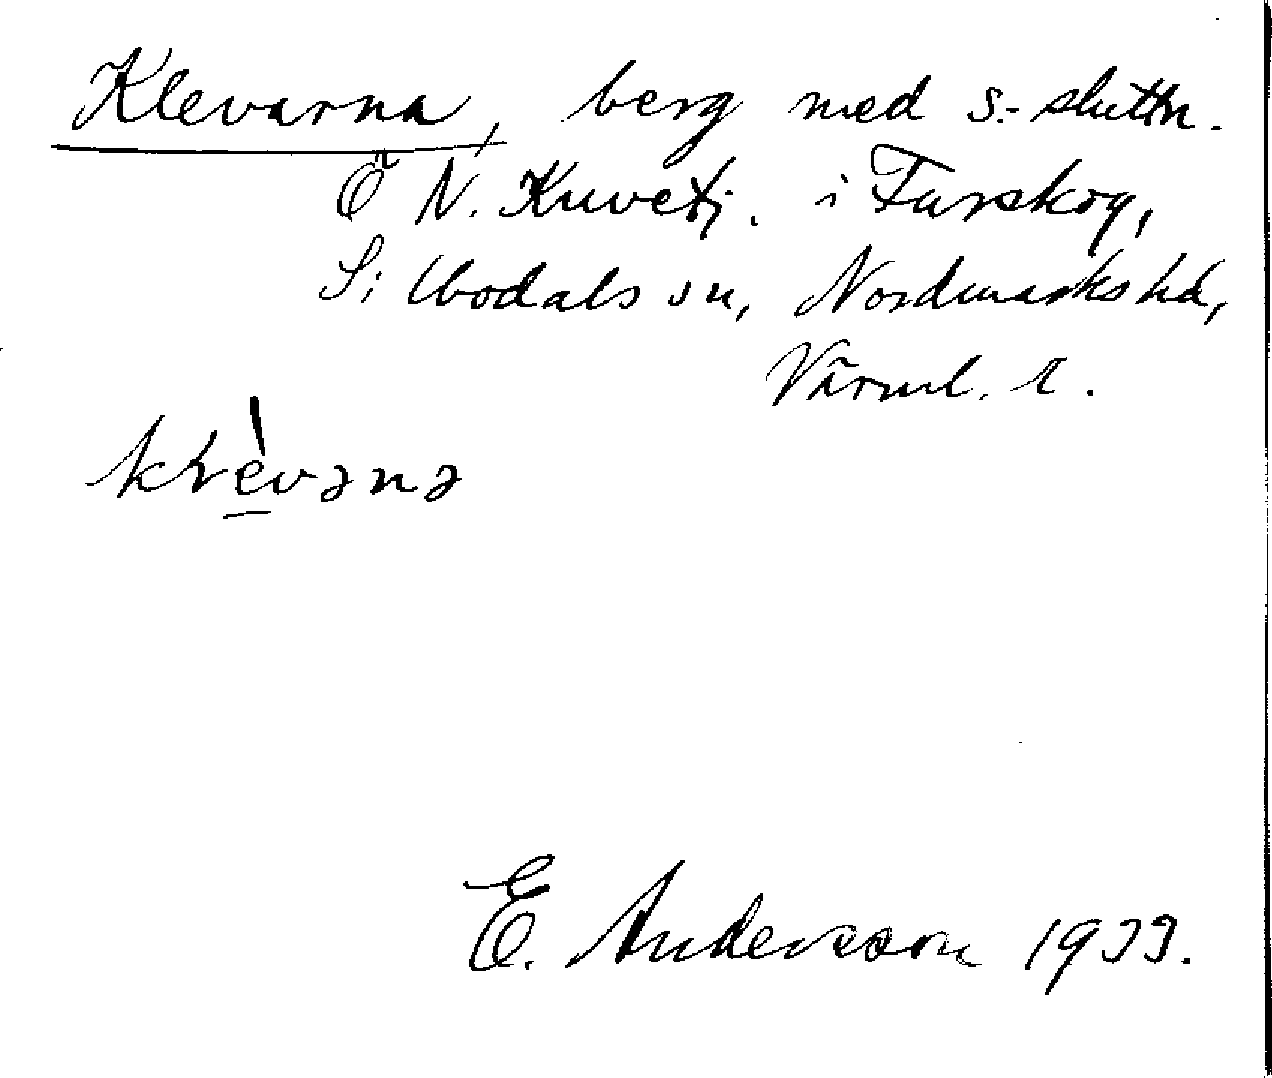 Klevarna, berg med s.-sluttn.
Ö N. Kuvetj. i Furskog,
Silbodals sn, Nordmarks hd,
Värml. l.
E. Andersson 1933.